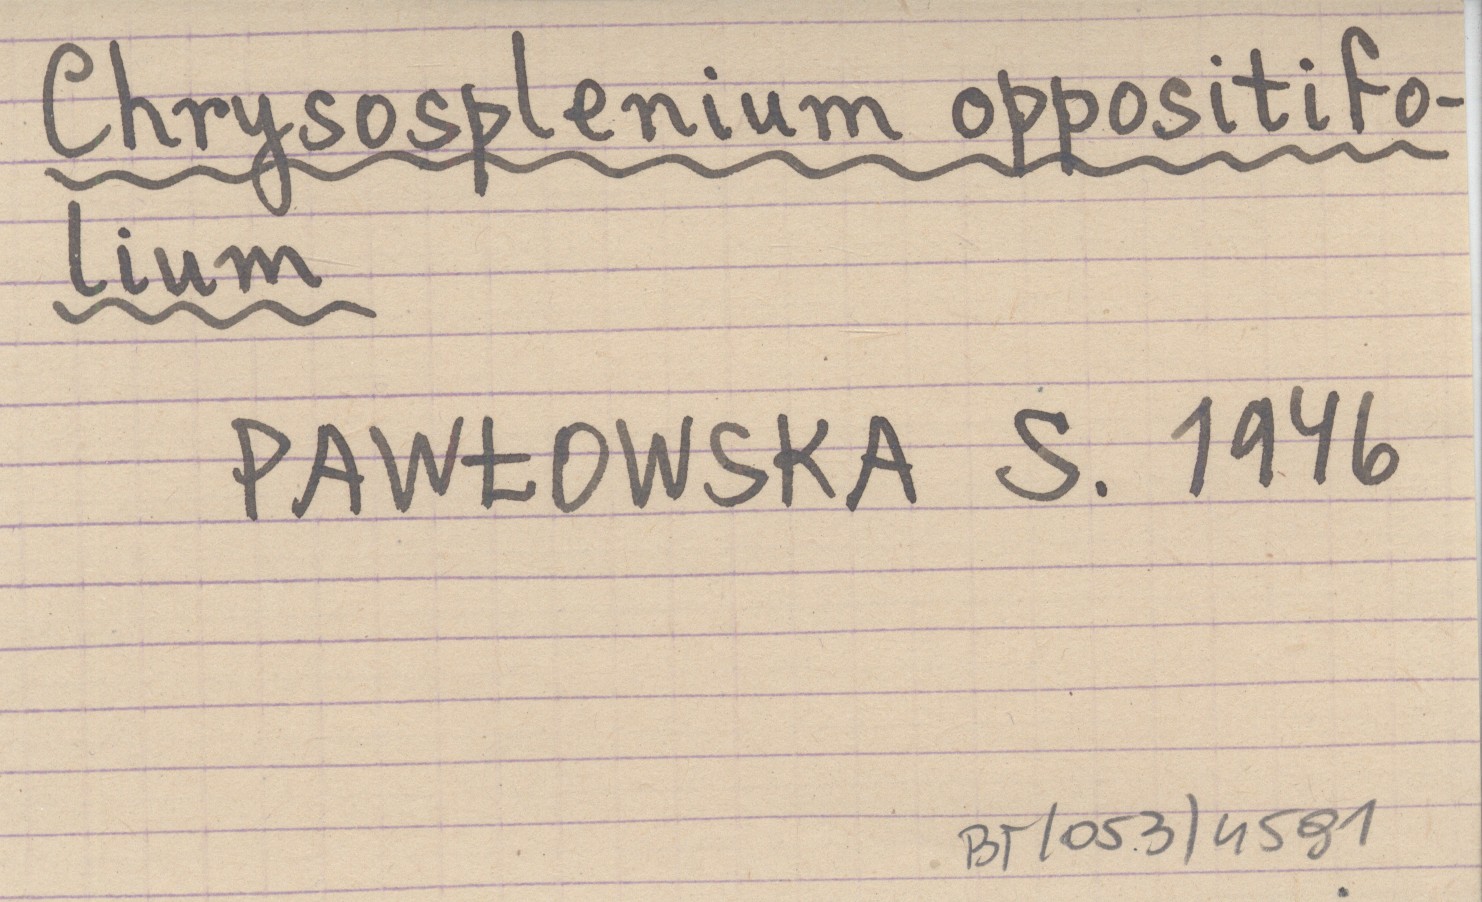 Chrysosplenium oppositifo-
lium
PAWŁOWSKA S. 1946
BT/053/4591